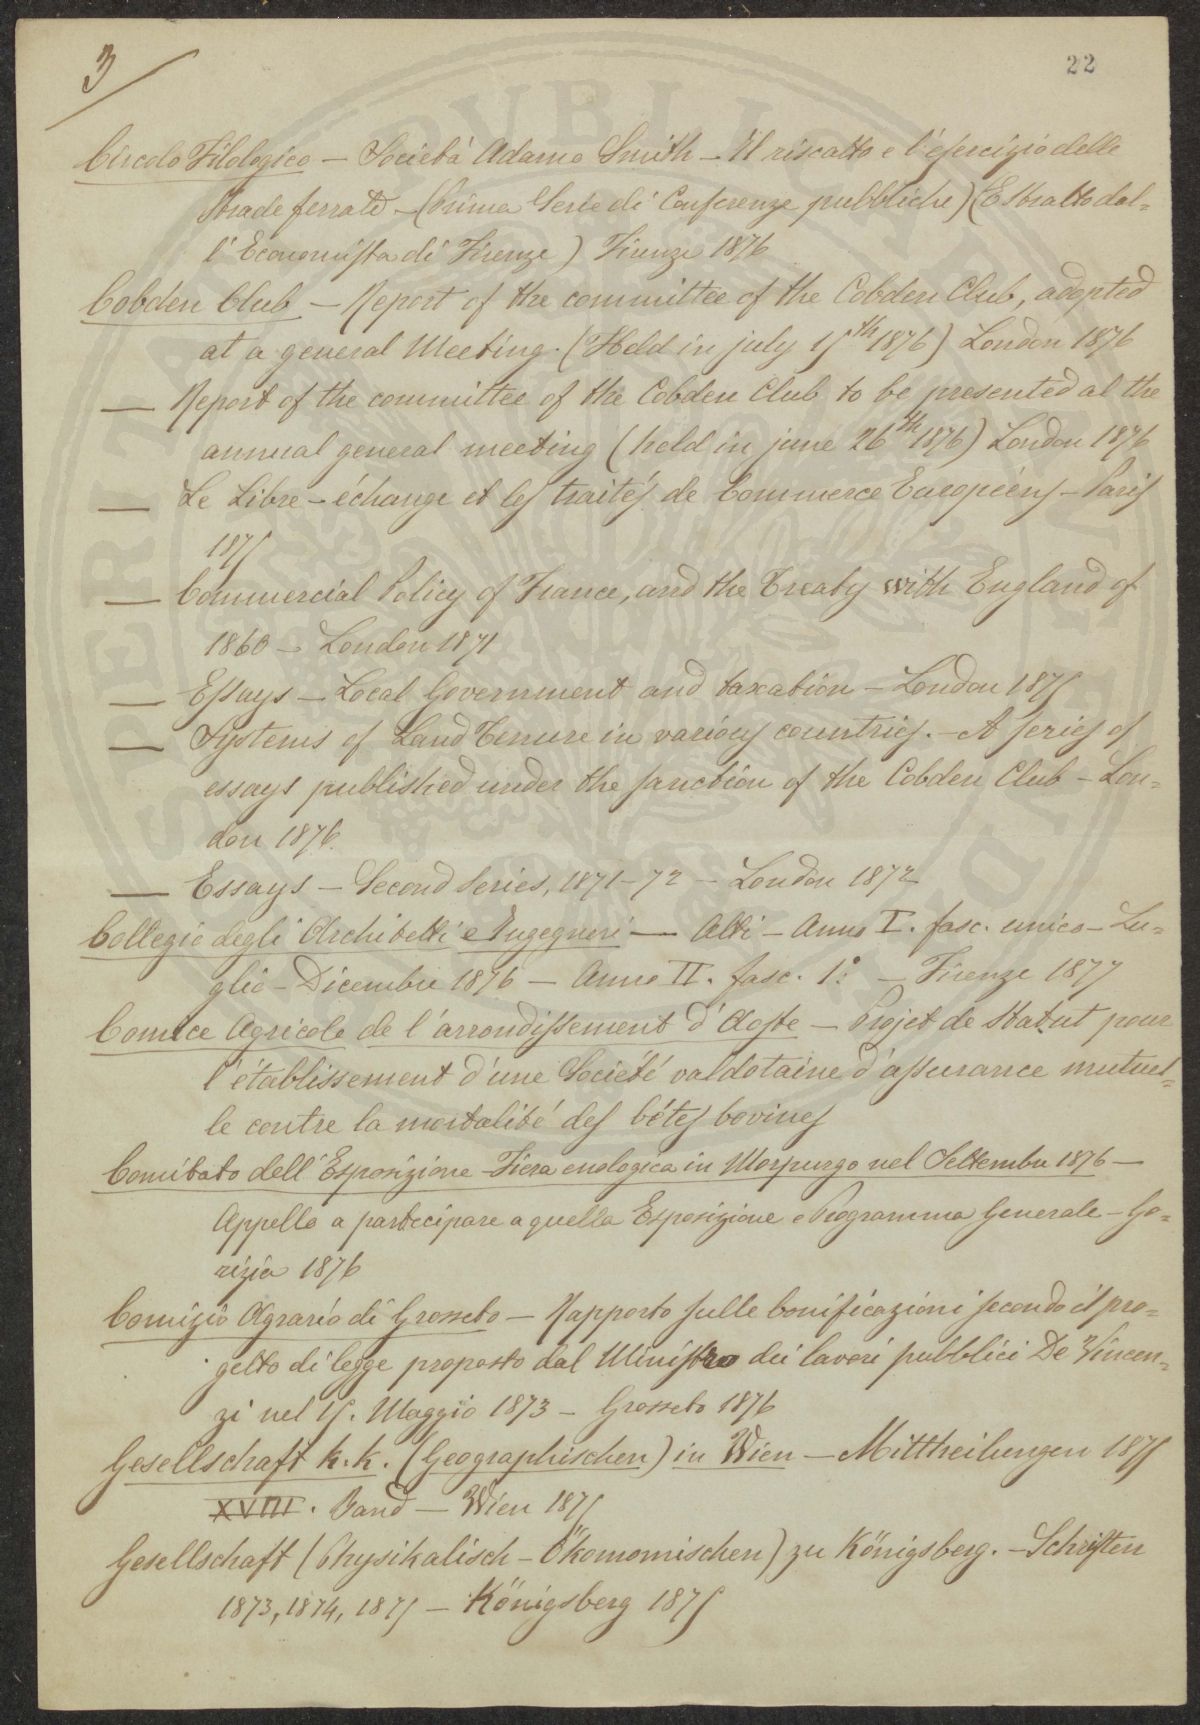 3
22
Circolo Filologico — Società Adamo Smith — Il riscatto e l'esercizio delle
strade ferrate — (Prima Serie di Conferenze pubbliche) (Estratto dal-
l'Economista di Firenze) Firenze 1876
Cobden Club — Report of the committee of the Cobden Club, adopted
at a general Meeting. (Held in july 15th 1876) London 1876
— Report of the committee of the Cobden Club to be presented at the
annual general meeting (held in june 26th 1876) London 1876
— Le Libre-échange et les traités de Commerce Européens — Paris
1875
— Commercial Policy of France, and the Treaty with England of
1860 — London 1871
— Essays — Local Government and taxation — London 1875
— Systems of Land Tenure in various countries. — A series of
essays published under the sanction of the Cobden Club — Lon-
don 1876.
— Essays — Second Series, 1871-72 — London 1872
Collegio degli Architetti e Ingegneri — Atti — Anno I. fasc. unico — Lu-
glio-Dicembre 1876 — Anno II. fasc. 1.° — Firenze 1877
Comice Agricole de l'arrondissement d'Aoste — Projet de Statut pour
l'établissement d'une Société valdotaine d'assurance mutuel-
le contre la mortalité des bêtes bovines
Comitato dell'Esposizione-Fiera enologica in Morpurgo nel Settembre 1876 —
Appello a partecipare a quella Esposizione e Programma Generale — Go-
rizia 1876
Comizio Agrario di Grosseto — Rapporto sulle bonificazioni secondo il pro-
getto di legge proposto dal Ministro dei lavori pubblici De Vincen-
zi nel 15. Maggio 1873 — Grosseto 1876
Gesellschaft k.k. (Geographischen) in Wien — Mittheilungen 1875
XVIII. Band — Wien 1875
Gesellschaft (Physikalisch-Ökonomischen) zu Königsberg. — Schriften
1873, 1874, 1875 — Königsberg 1875